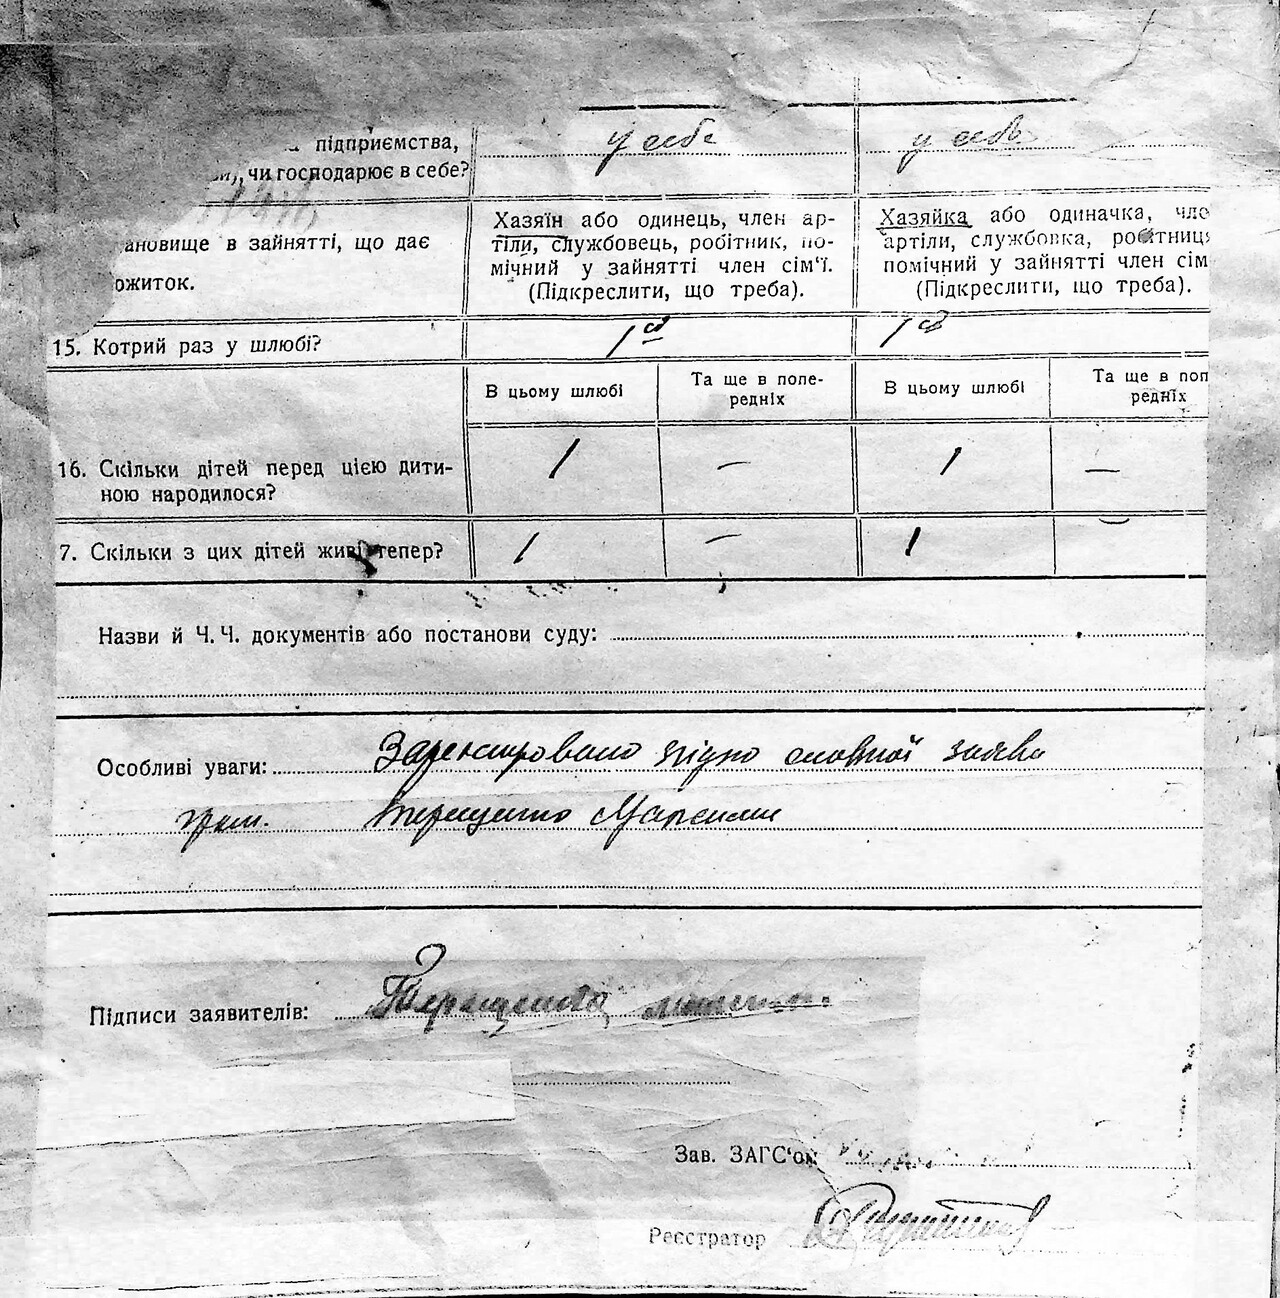 підприємства, у себе у себе
чи господарює в себе?
Хазяїн або одинець, член ар-
тіли, службовець, робітник, по-
мічний у зайнятті член сім'ї.
(Підкреслити, що треба).
Хазяйка або одиначка, чле
артіли, службовка, робітниця
помічний у зайнятті член сім
(Підкреслити, що треба).
ановище в зайнятті, що дає
ожиток.
15. Котрий раз у шлюбі? 1 1
В цьому шлюбі
Та ще в попе-
редніх
В цьому шлюбі
Та ще в поп
редніх
16. Скільки дітей перед цією дити-
ною народилося? 1 — 1 —
7. Скільки з цих дітей живі тепер? 1 — 1 —
Назви й Ч. Ч. документів або постанови суду:
Особливі уваги: Зареєстровано згідно словної заяви
гром. Терещенко
Підписи заявителів: Терещенко
Зав. ЗАГС'ом
Реєстратор